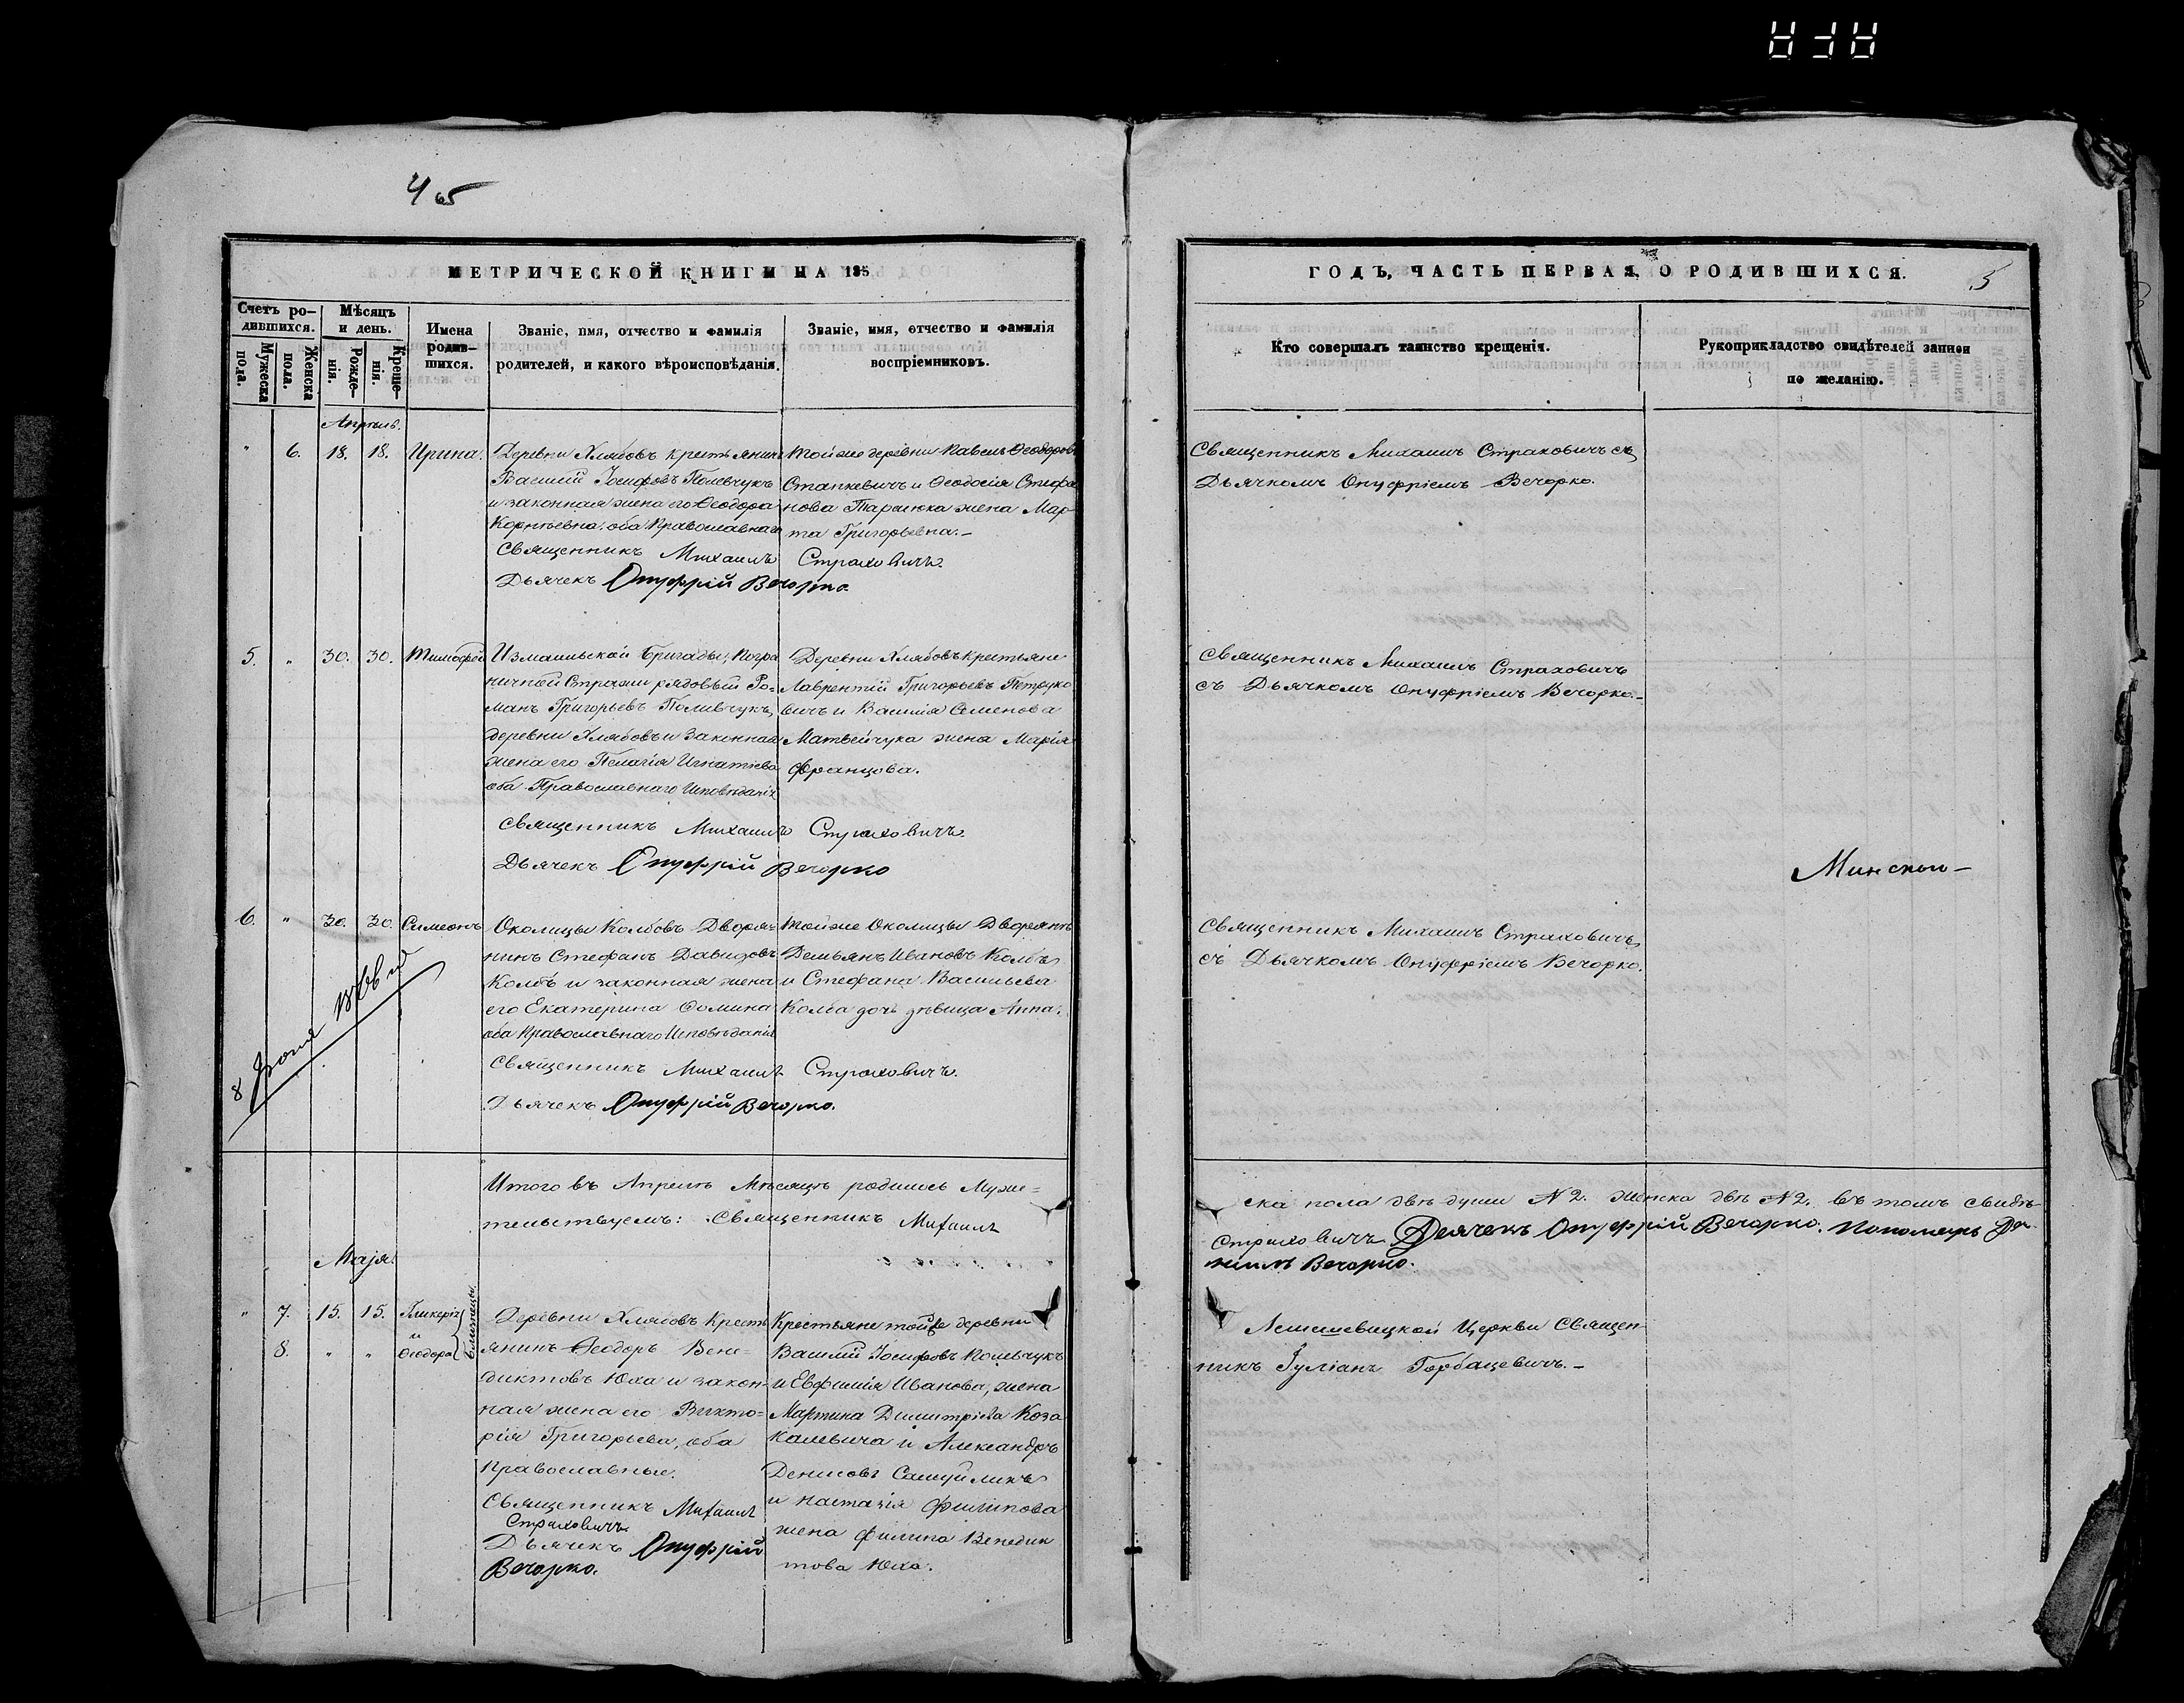 4
МЕТРИЧЕСКОЙ КНИГИ НА 185
Счетъ ро-
дившихся.
Мѣсяцъ
и день.
Мужеска
пола.
Женска
пола.
Рожде-
нія.
Креще-
нія.
Имена
родив-
шихся.
Званіе, имя, отчество и фамилія
родителей, и какого вѣроисповѣданія.
Званіе, имя, отчество и фамилія
воспріемниковъ.
Апрѣль.
" 6. 18. 18. Ирина.
Деревни Хлябовъ крестьянинъ
Василій Іосифовъ Полевчукъ
и законная жена его Ѳеодора
Корнѣевна, оба Православнаго
Тойже деревни Павелъ Ѳеодоровъ
Станкевичъ и Ѳеодосія Стефа
нова Тарасюка жена Мар
та Григорьевна.-
Священникъ Михаилъ Страховичъ.
Дьячекъ Онуфрій Вечорко.
5. " 30. 30. Тимофей
Измаильской бригады, Погра
ничной Стражи рядовый Ро-
манъ Григорьевъ Поливчукъ,
деревни Хлябовъ и законная
жена его Пелагія Игнатіева
оба Православнаго Исповѣданія
Деревни Хлябовъ Крестьяне
Лаврентій Григорьевъ Петруко
вичъ и Василія Семенова
Матвейчука жена Марія
Францова.
Священникъ Михаилъ Страховичъ.
Дьячекъ Онуфрій Вечорко
6. " 30. 30. Симеонъ
Околицы Колбовъ Дворя-
нинъ Стефанъ Давидовъ
Колбъ и законная жена
его Екатерина Фомина
оба Православнаго Исповѣданія
Тойже Околицы Дворянинъ
Демьянъ Ивановъ Колбъ
и Стефана Васильева
Колба дочь дѣвица Анна.
8
Священникъ Михаилъ Страховичъ.
Дьячекъ Онуфрій Вечорко.
Итого въ Апрелѣ Мѣсяцѣ родилось Муже-
тельствуемъ: Священникъ Михаилъ
Маія.
" 7. 15. 15. Гликерія
и
8. " " Ѳеодора
близнецы
Деревни Хлябовъ Кресть
янинъ Ѳеодоръ Вене-
диктовъ Юха и закон-
ная жена его Викто-
рія Григорьева, оба
православные.
Крестьяне тойже деревни
Василій Іосифовъ Полевчукъ
и Евфимія Иванова, жена
Мартина Димитріева Коза
калевича и Александръ
Денисовъ Самуйликъ
и Настазія Филипова
жена Филипа Венедик
това Юха.
Священникъ Михаилъ
Страховичъ
Дьячекъ Онуфрій
Вечорко.
ГОДЪ, ЧАСТЬ ПЕРВАЯ, О РОДИВШИХСЯ.
5
Кто совершалъ таинство крещенія.
Рукоприкладство свидѣтелей записи
по желанію.
Священникъ Михаилъ Страховичъ съ
Дьячкомъ Онуфріемъ Вечорко.
Священникъ Михаилъ Страховичъ
съ Дьячкомъ Онуфріемъ Вечорко.-
Священникъ Михаилъ Страховичъ
съ Дьячкомъ Онуфріемъ Вечорко.
ска пола двѣ души N 2. женска двѣ N 2. въ томъ свидѣ-
Страховичъ Дьячекъ Онуфрій Вечорко. Пономарь Да-
ніилъ Вечорко.
Церкви Священ
никъ Іуліанъ Горбацевичъ.-